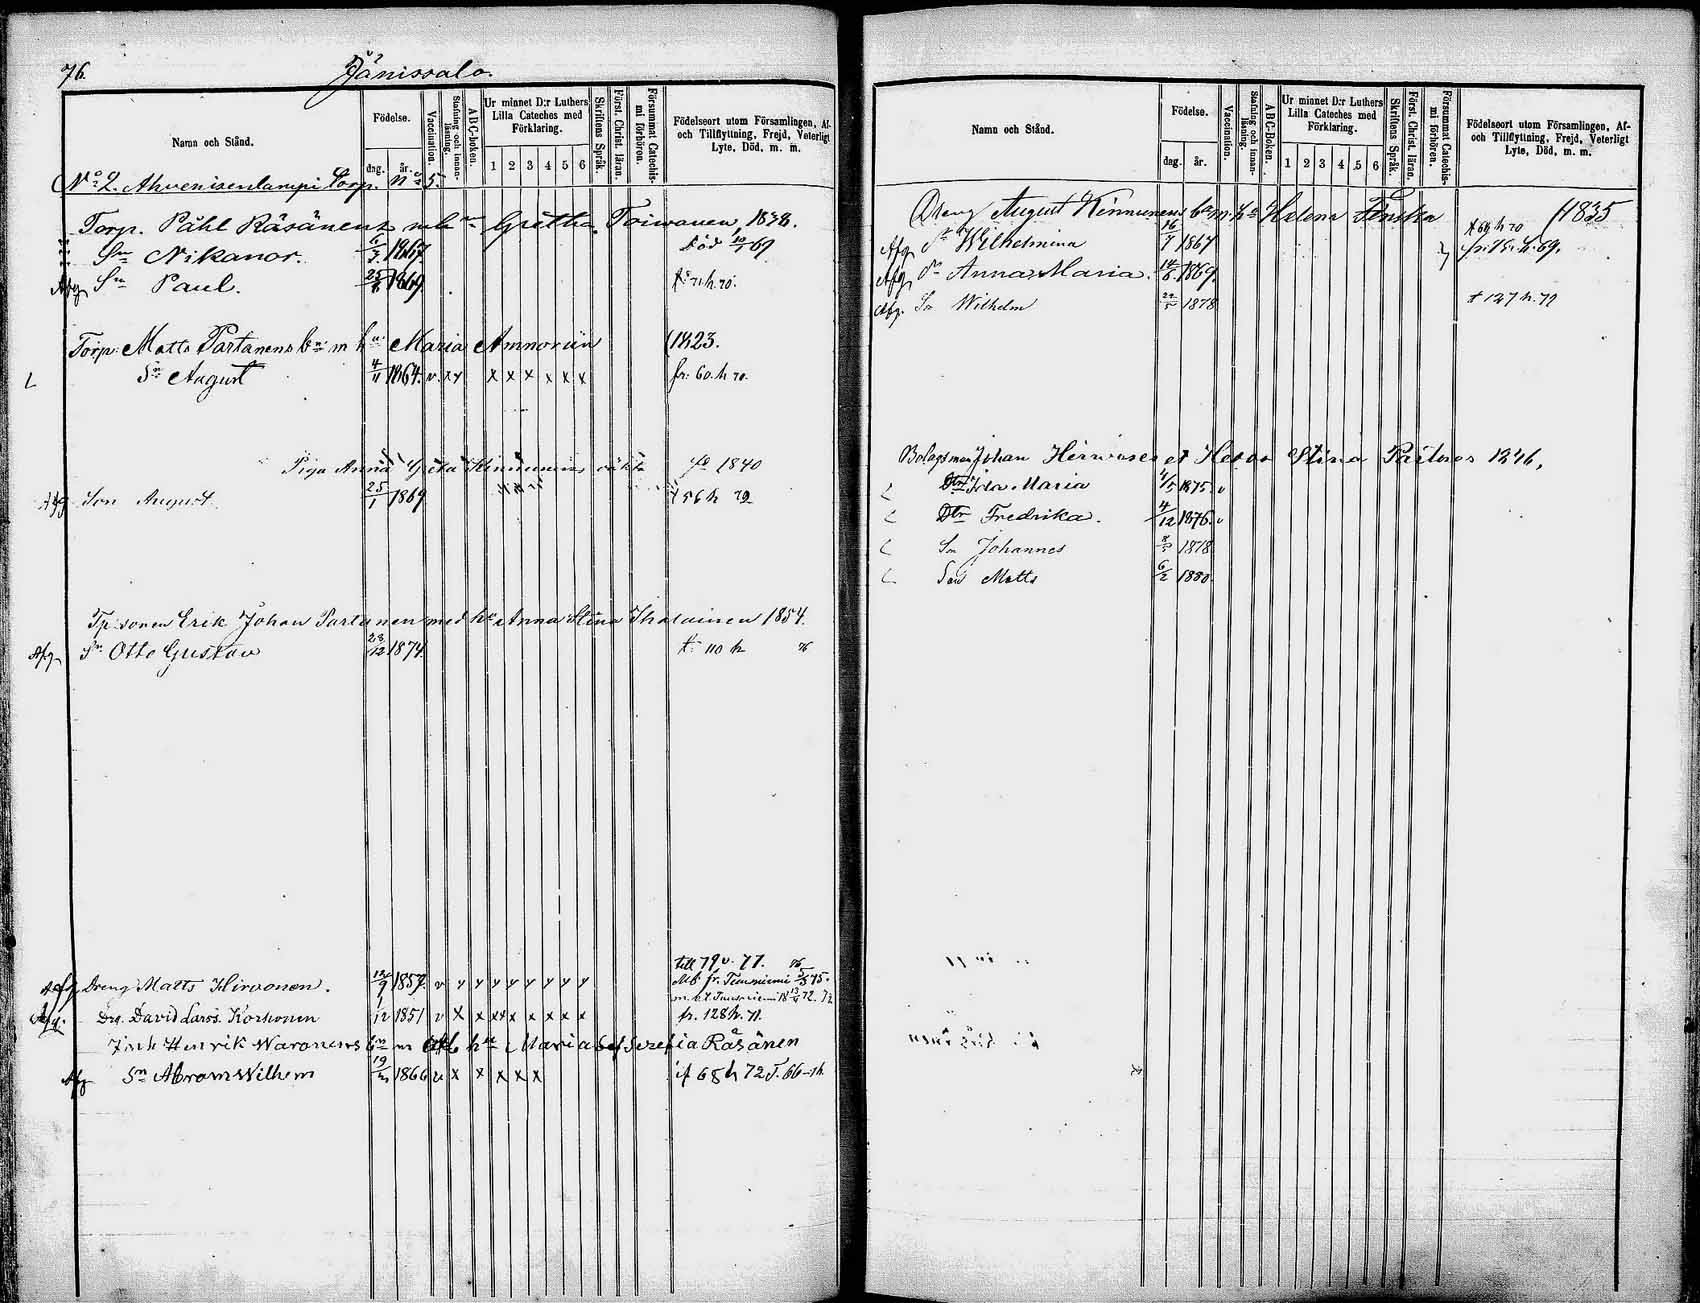 76.
Jänissalo.
Namn och Stånd.
Födelse.
dag. år.
Vaccination.
Stafning och innanläsning.
A B C-boken.
Ur minnet D:r Luthers Lilla Cateches med Förklaring.
1 2 3 4 5 6
Skriftens Språk.
Först. Christ. läran.
Försummat Catechismi förhören.
Födelseort utom Församlingen, Af- och Tillflyttning, Frejd, Veterligt Lyte, Död, m. m.
No 2. Ahvenisenlampi Torp. No 5.
Torp. Påhl Räsänens m h Gretha Toiwanen, 1838.
Sn Nikanor. 6/7 1867. Död 10/1 69
Afg Sn Paul. 25/6 1869. 71 h. 70.
Torp: Matts Partanens bn m hu Maria Amnoriin (1823.
L Sn August 4/11 1864. v. x y x x x x x x fr. 60. h 70.
Piga Anna Greta Kinnunens 1840
Afg Son August. 25/1 1869 56 h 72
Tp: sonen Erik Johan Partanen med hu Anna Stina Ihalainen 1854.
Afg Sn Otto Gustav 23/12 1874. t. 110 h 76
till 79 v. 77. 76
Afg Dreng Matts Hirvonen. 12/9 1857. v y y y y y y y y Mb fr. Tuusniemi 5/5 75.
Afg. Drg. David Larss. Korhonen 1/12 1851 v x x x x x x x x fr. 128 h. 71.
Inh Henrik Waronens bn m hu Maria Serefia Räsänen
Afg Sn Abram Wilhem 19/ 1866 v x x x x x if 68 h 72
Namn och Stånd.
Födelse.
dag. år.
Vaccination.
Stafning och innanläsning.
A B C-boken.
Ur minnet D:r Luthers Lilla Cateches med Förklaring.
1 2 3 4 5 6
Skriftens Språk.
Först. Christ. läran.
Försummat Catechismi förhören.
Födelseort utom Församlingen, Af- och Tillflyttning, Frejd, Veterligt Lyte, Död, m. m.
Dreng August Kinnunens bn m. hu Helena Finska (1835
t 69 h 70
Afg. Dr Wilhelmina 16/7 1867 fr. 75. h. 69.
Afg. Dr Anna Maria. 14/6 1869.
Afg. Son Wilhelm 22/5 1878 t 127 h. 79
Bolagsman Johan Hirvonen et Stina 1846,
Dtr Ida Maria 4/5 1875. v
Dtr Fredrika. 4/12 1876. v
Son Johannes 8/5 1878
Son Matts 6/2 1880